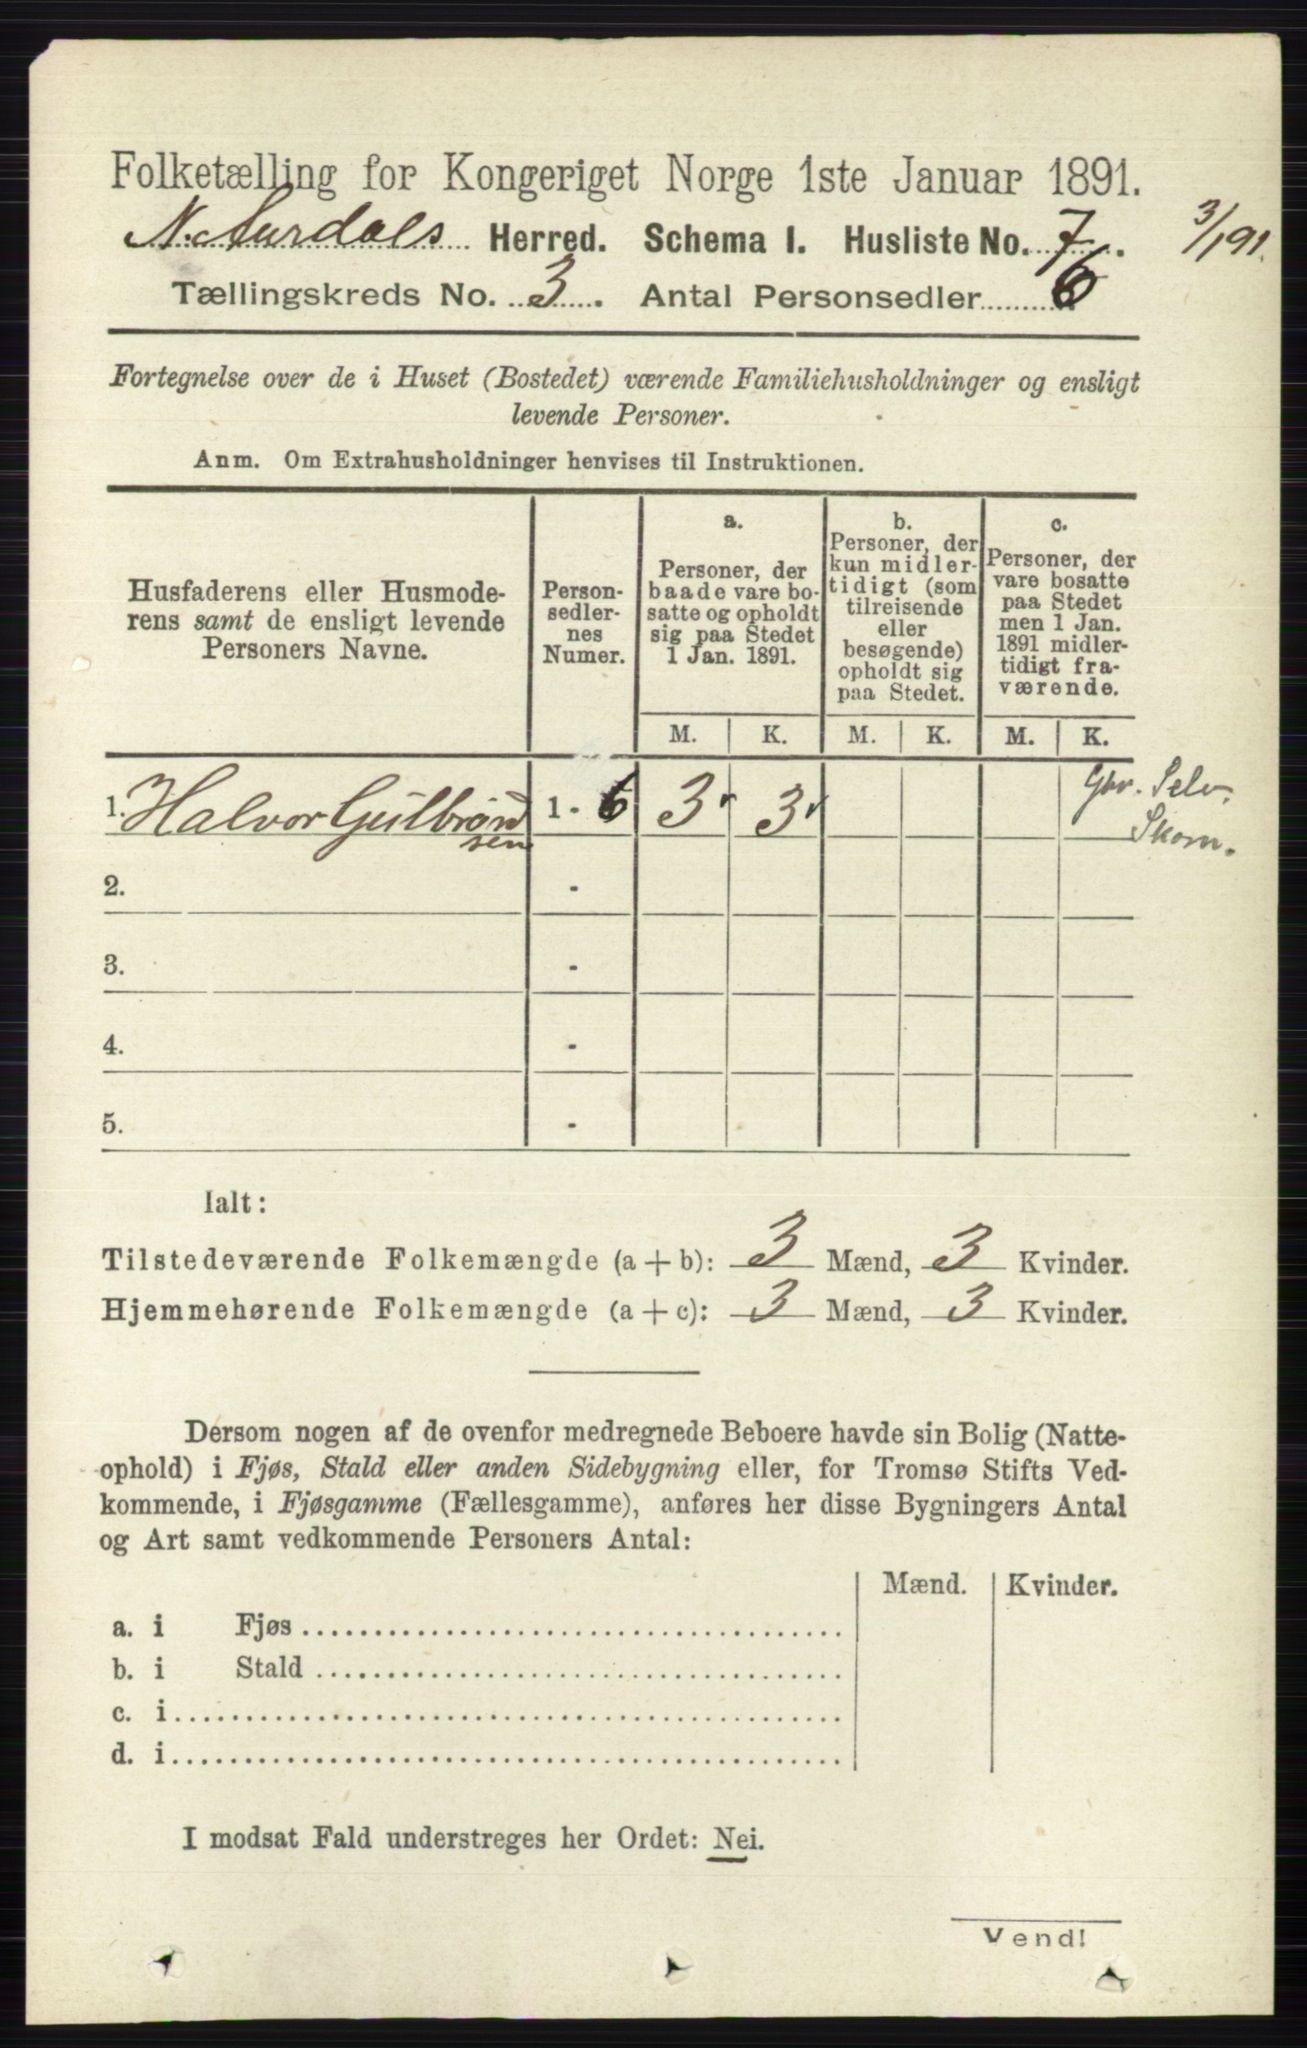 Folketælling for Kongeriget Norge 1ste Januar 1891.
N. Aurdals Herred. Schema I. Husliste No. 7.
3/1 91.
Tællingskreds No. 3. Antal Personsedler 6
Fortegnelse over de i Huset (Bostedet) værende Familiehusholdninger og ensligt
levende Personer.
Anm. Om Extrahusholdninger henvises til Instruktionen.
Husfaderens eller Husmode-
rens samt de ensligt levende
Personers Navne.
Person-
sedler-
nes
Numer.
a.
Personer, der
baade vare bo-
satte og opholdt
sig paa Stedet
1 Jan. 1891.
b.
Personer, der
kun midler-
tidigt (som
tilreisende
eller
besøgende)
opholdt sig
paa Stedet.
c.
Personer, der
vare bosatte
paa Stedet
men 1 Jan.
1891 midler-
tidigt fra-
værende.
M. K. M. K. M. K.
1. Halvor Gulbrand 1 - 6 3 3 Gbr. Selv.
sen Skom.
2. -
3. -
4. -
5. -
Ialt:
Tilstedeværende Folkemængde (a + b): 3 Mænd, 3 Kvinder.
Hjemmehørende Folkemængde (a + c): 3 Mænd, 3 Kvinder.
Dersom nogen af de ovenfor medregnede Beboere havde sin Bolig (Natte-
ophold) i Fjøs, Stald eller anden Sidebygning eller, for Tromsø Stifts Ved-
kommende, i Fjøsgamme (Fællesgamme), anføres her disse Bygningers Antal
og Art samt vedkommende Personers Antal:
Mænd. Kvinder.
a. i Fjøs
b. i Stald
c. i
d. i
I modsat Fald understreges her Ordet: Nei.
Vend!